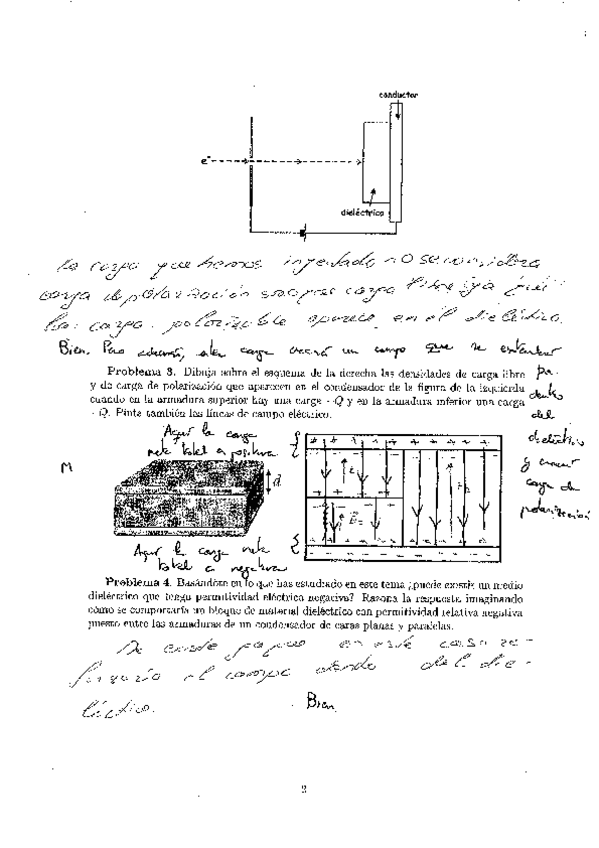 conductor
e⁻
dieléctrico
la carga que hemos inyectado no se considera
carga de polarización sino que carga libre ya que
la carga polarizable aparece en el dieléctrico.
Bien. Pero además, esta carga creará un campo que se extenderá
Problema 3. Dibuja sobre el esquema de la derecha las densidades de carga libre
y de carga de polarización que aparecen en el condensador de la figura de la izquierda
cuando en la armadura superior hay una carga +Q y en la armadura inferior una carga
-Q. Pinta también las líneas de campo eléctrico.
dentro
del
dieléctrico
y creará
carga de
polarización
Aquí la carga
neta total es positiva
M
d
Aquí la carga neta
total es negativa
Problema 4. Basándote en lo que has estudiado en este tema ¿puede existir un medio
dieléctrico que tenga permitividad eléctrica negativa? Razona la respuesta imaginando
cómo se comportaría un bloque de material dieléctrico con permitividad relativa negativa
puesto entre las armaduras de un condensador de caras planas y paralelas.
No puede porque en este caso se
el campo dentro del die-
léctrico.
Bien.
2